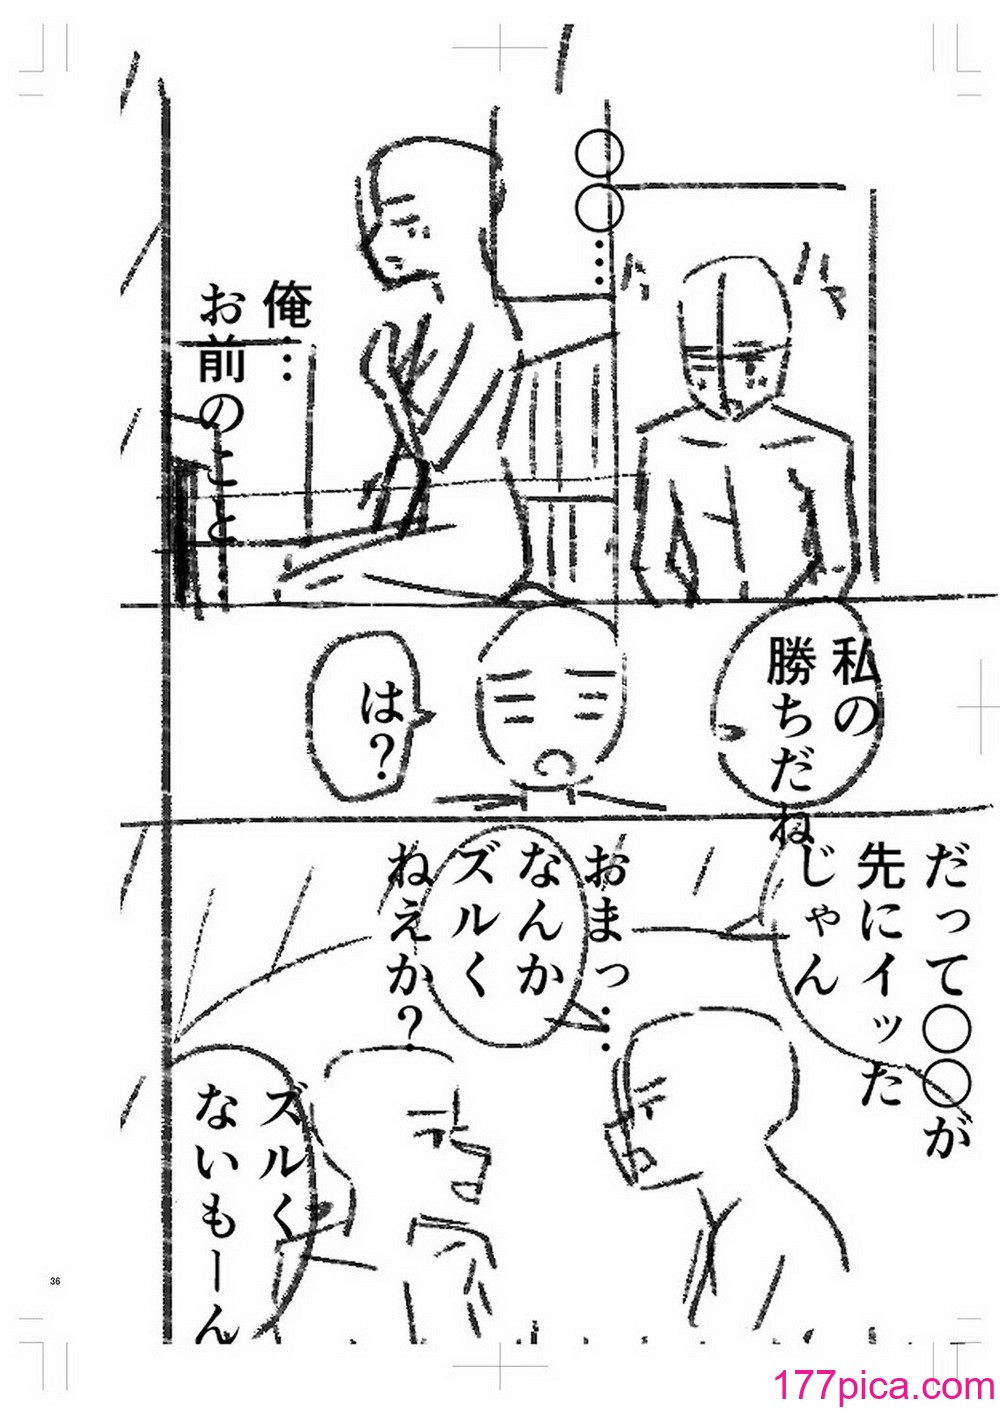 ○○……
俺…
お前のこと……
私の
勝ちだね
は？
だって○○が
先にイッた
じゃん
おまっ…
なんか
ズルく
ねえか？
ズルく
ないもーん
36
177pica.com